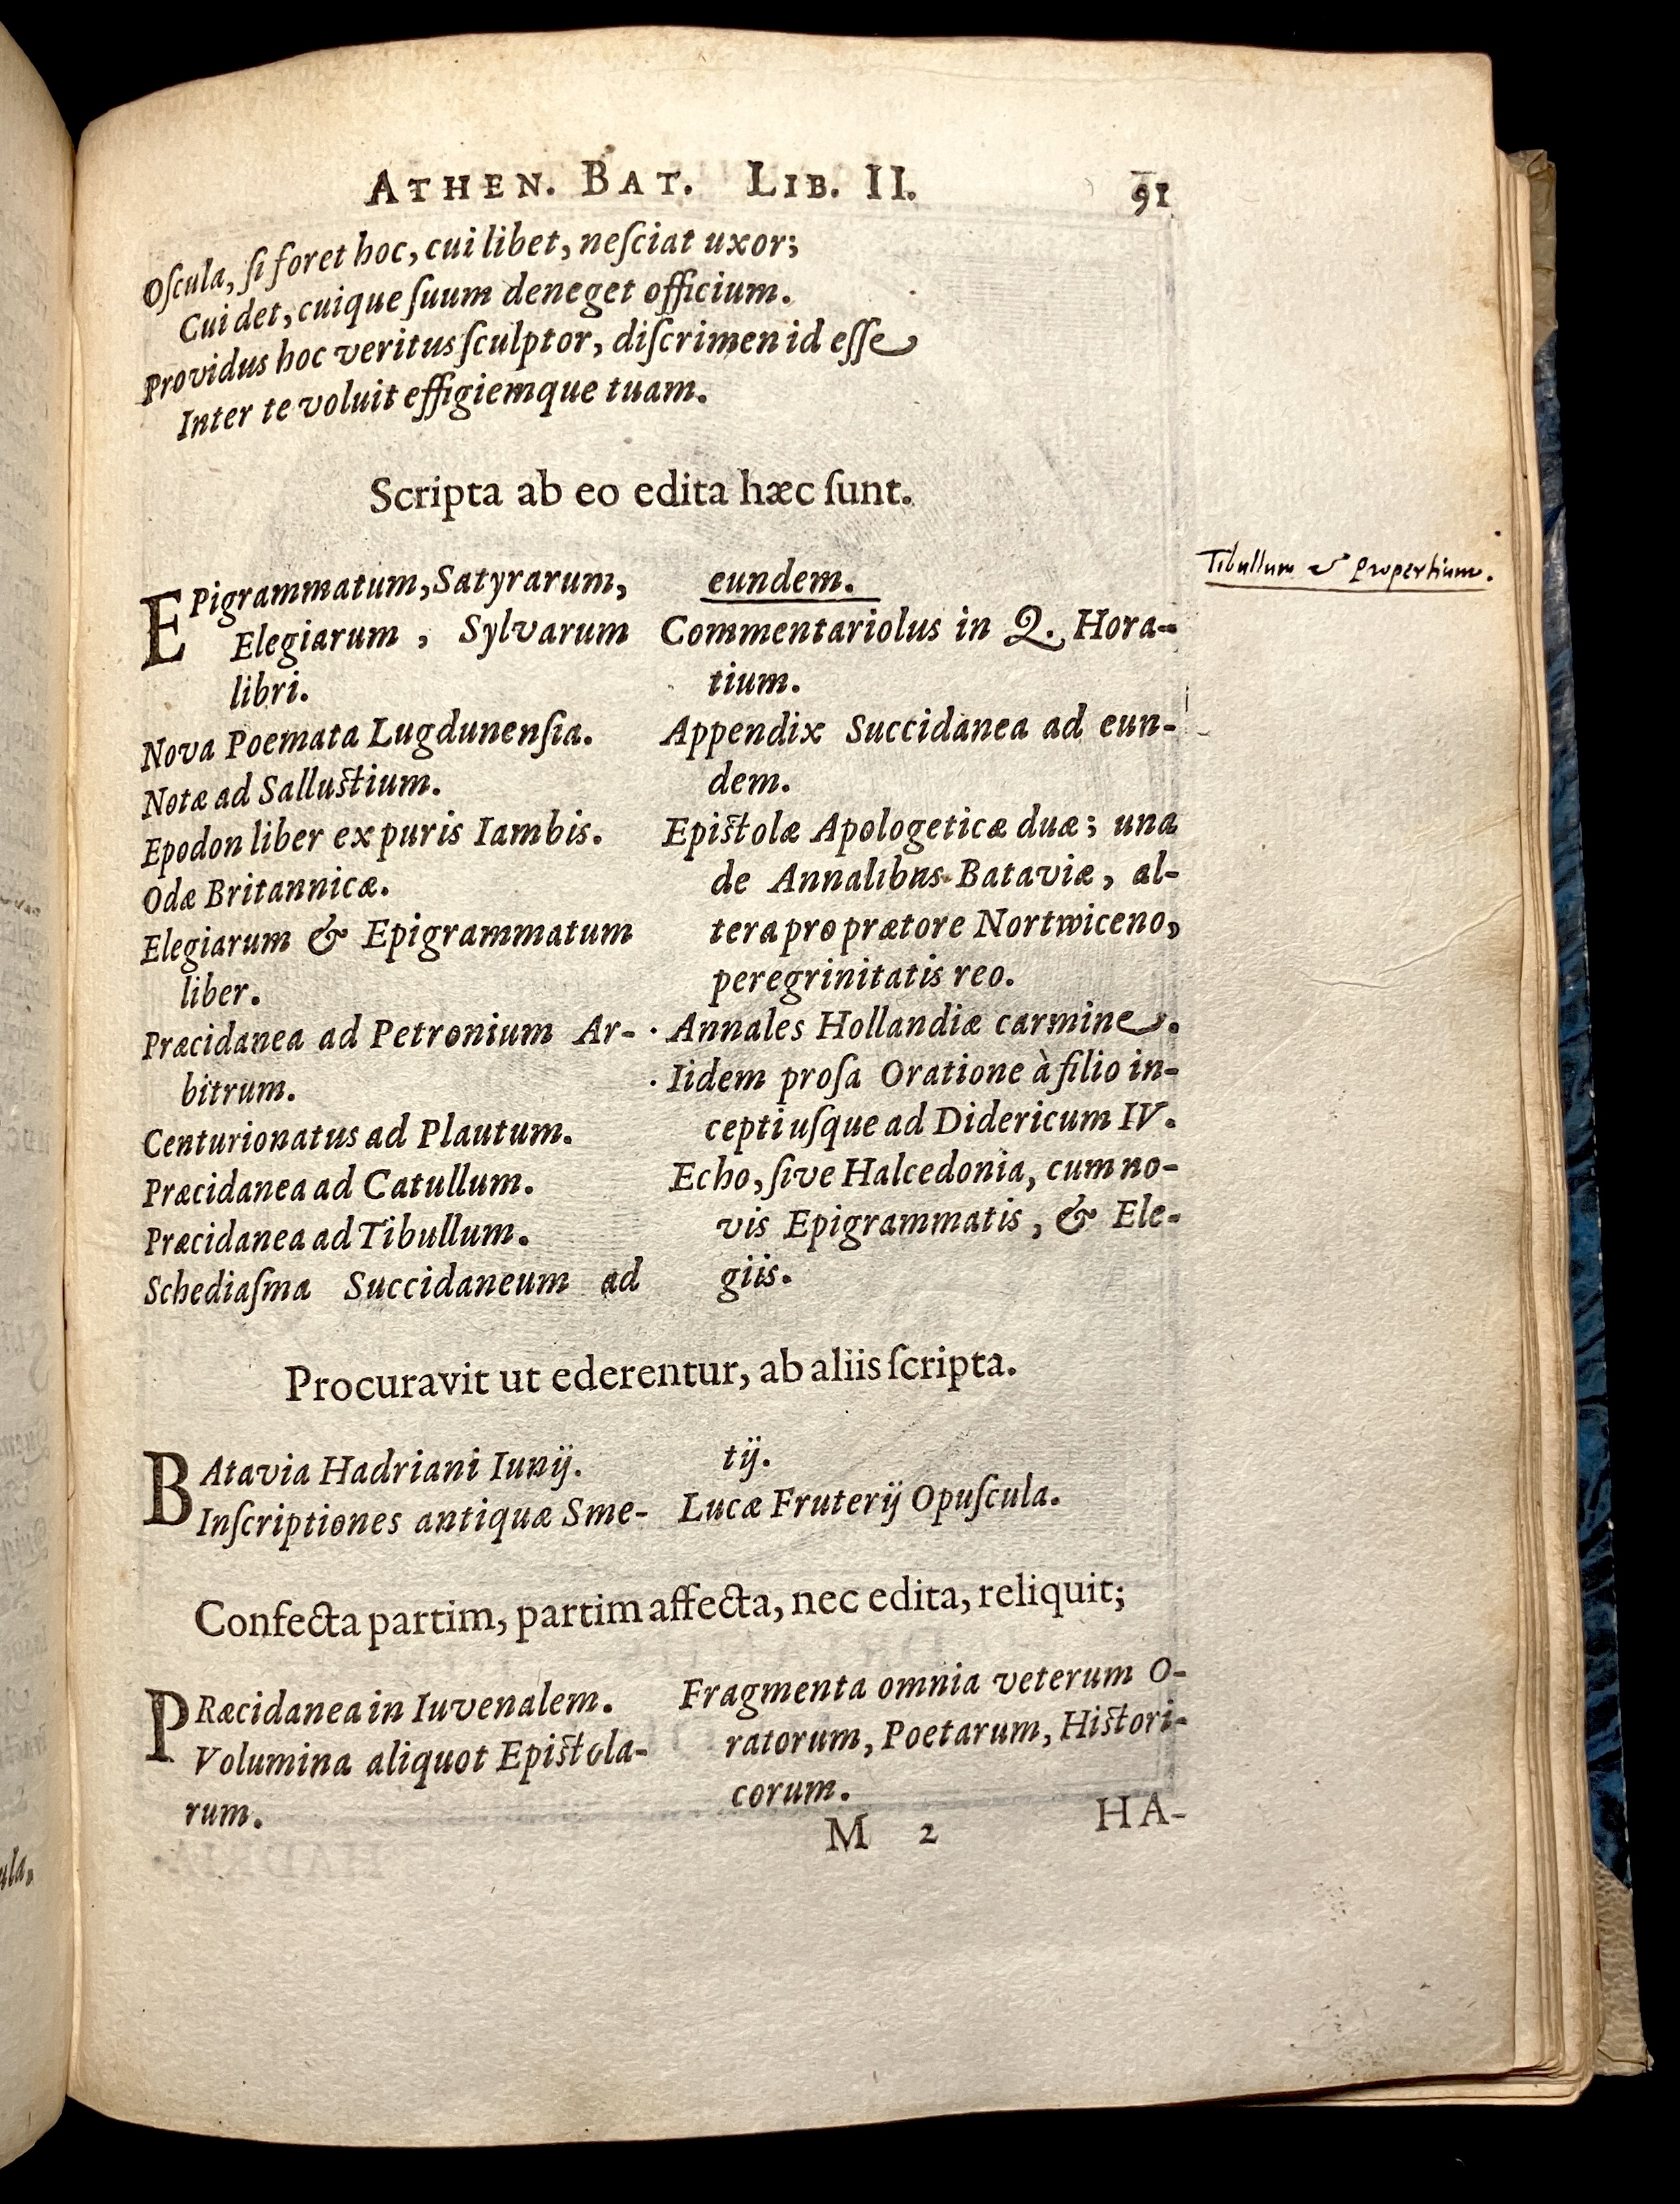 ATHEN. BAT. LIB. II. 91
Oſcula, ſi foret hoc, cui libet, neſciat uxor;
Cui det, cuique ſuum deneget officium.
Providus hoc veritus ſculptor, diſcrimen id eſſe
Inter te voluit effigiemque tuam.
Scripta ab eo edita hæc ſunt.
EPigrammatum, Satyrarum,
Elegiarum, Sylvarum
libri.
Nova Poemata Lugdunenſia.
Notæ ad Salluſtium.
Epodon liber ex puris Iambis.
Odæ Britannicæ.
Elegiarum & Epigrammatum
liber.
Præcidanea ad Petronium Ar-
bitrum.
Centurionatus ad Plautum.
Præcidanea ad Catullum.
Præcidanea ad Tibullum.
Schediaſma Succidaneum ad
eundem.
Tibullum & Propertium.
Commentariolus in Q. Hora-
tium.
Appendix Succidanea ad eun-
dem.
Epiſtolæ Apologeticæ duæ; una
de Annalibus Bataviæ, al-
tera pro prætore Nortwiceno,
peregrinitatis reo.
· Annales Hollandiæ carmine.
· Iidem proſa Oratione à filio in-
cepti uſque ad Didericum IV.
Echo, ſive Halcedonia, cum no-
vis Epigrammatis, & Ele-
giis.
Procuravit ut ederentur, ab aliis ſcripta.
BAtavia Hadriani Iunij.
Inſcriptiones antiquæ Sme-
tij.
Lucæ Fruterij Opuſcula.
Confecta partim, partim affecta, nec edita, reliquit;
PRæcidanea in Iuvenalem.
Volumina aliquot Epiſtola-
rum.
Fragmenta omnia veterum O-
ratorum, Poetarum, Hiſtori-
corum.
M 2 HA-